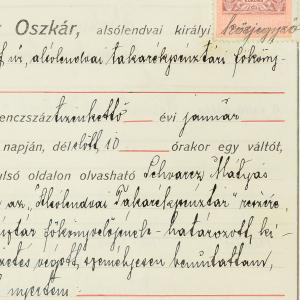 r Oszkár, alsólendvai királyi közjegyző
f úr, alsólendvai takarékpénztári főköny-
enczszáz tizenkettő évi január
napján, dél előtt 10 órakor egy váltót,
ulsó oldalon olvasható Schvarcz Mátyás
az „Alsólendvai Takarékpénztár” részére,
ztár főkönyvelőjének határozott, ki-
zetés végett személyesen bemutattam,
nyertem: